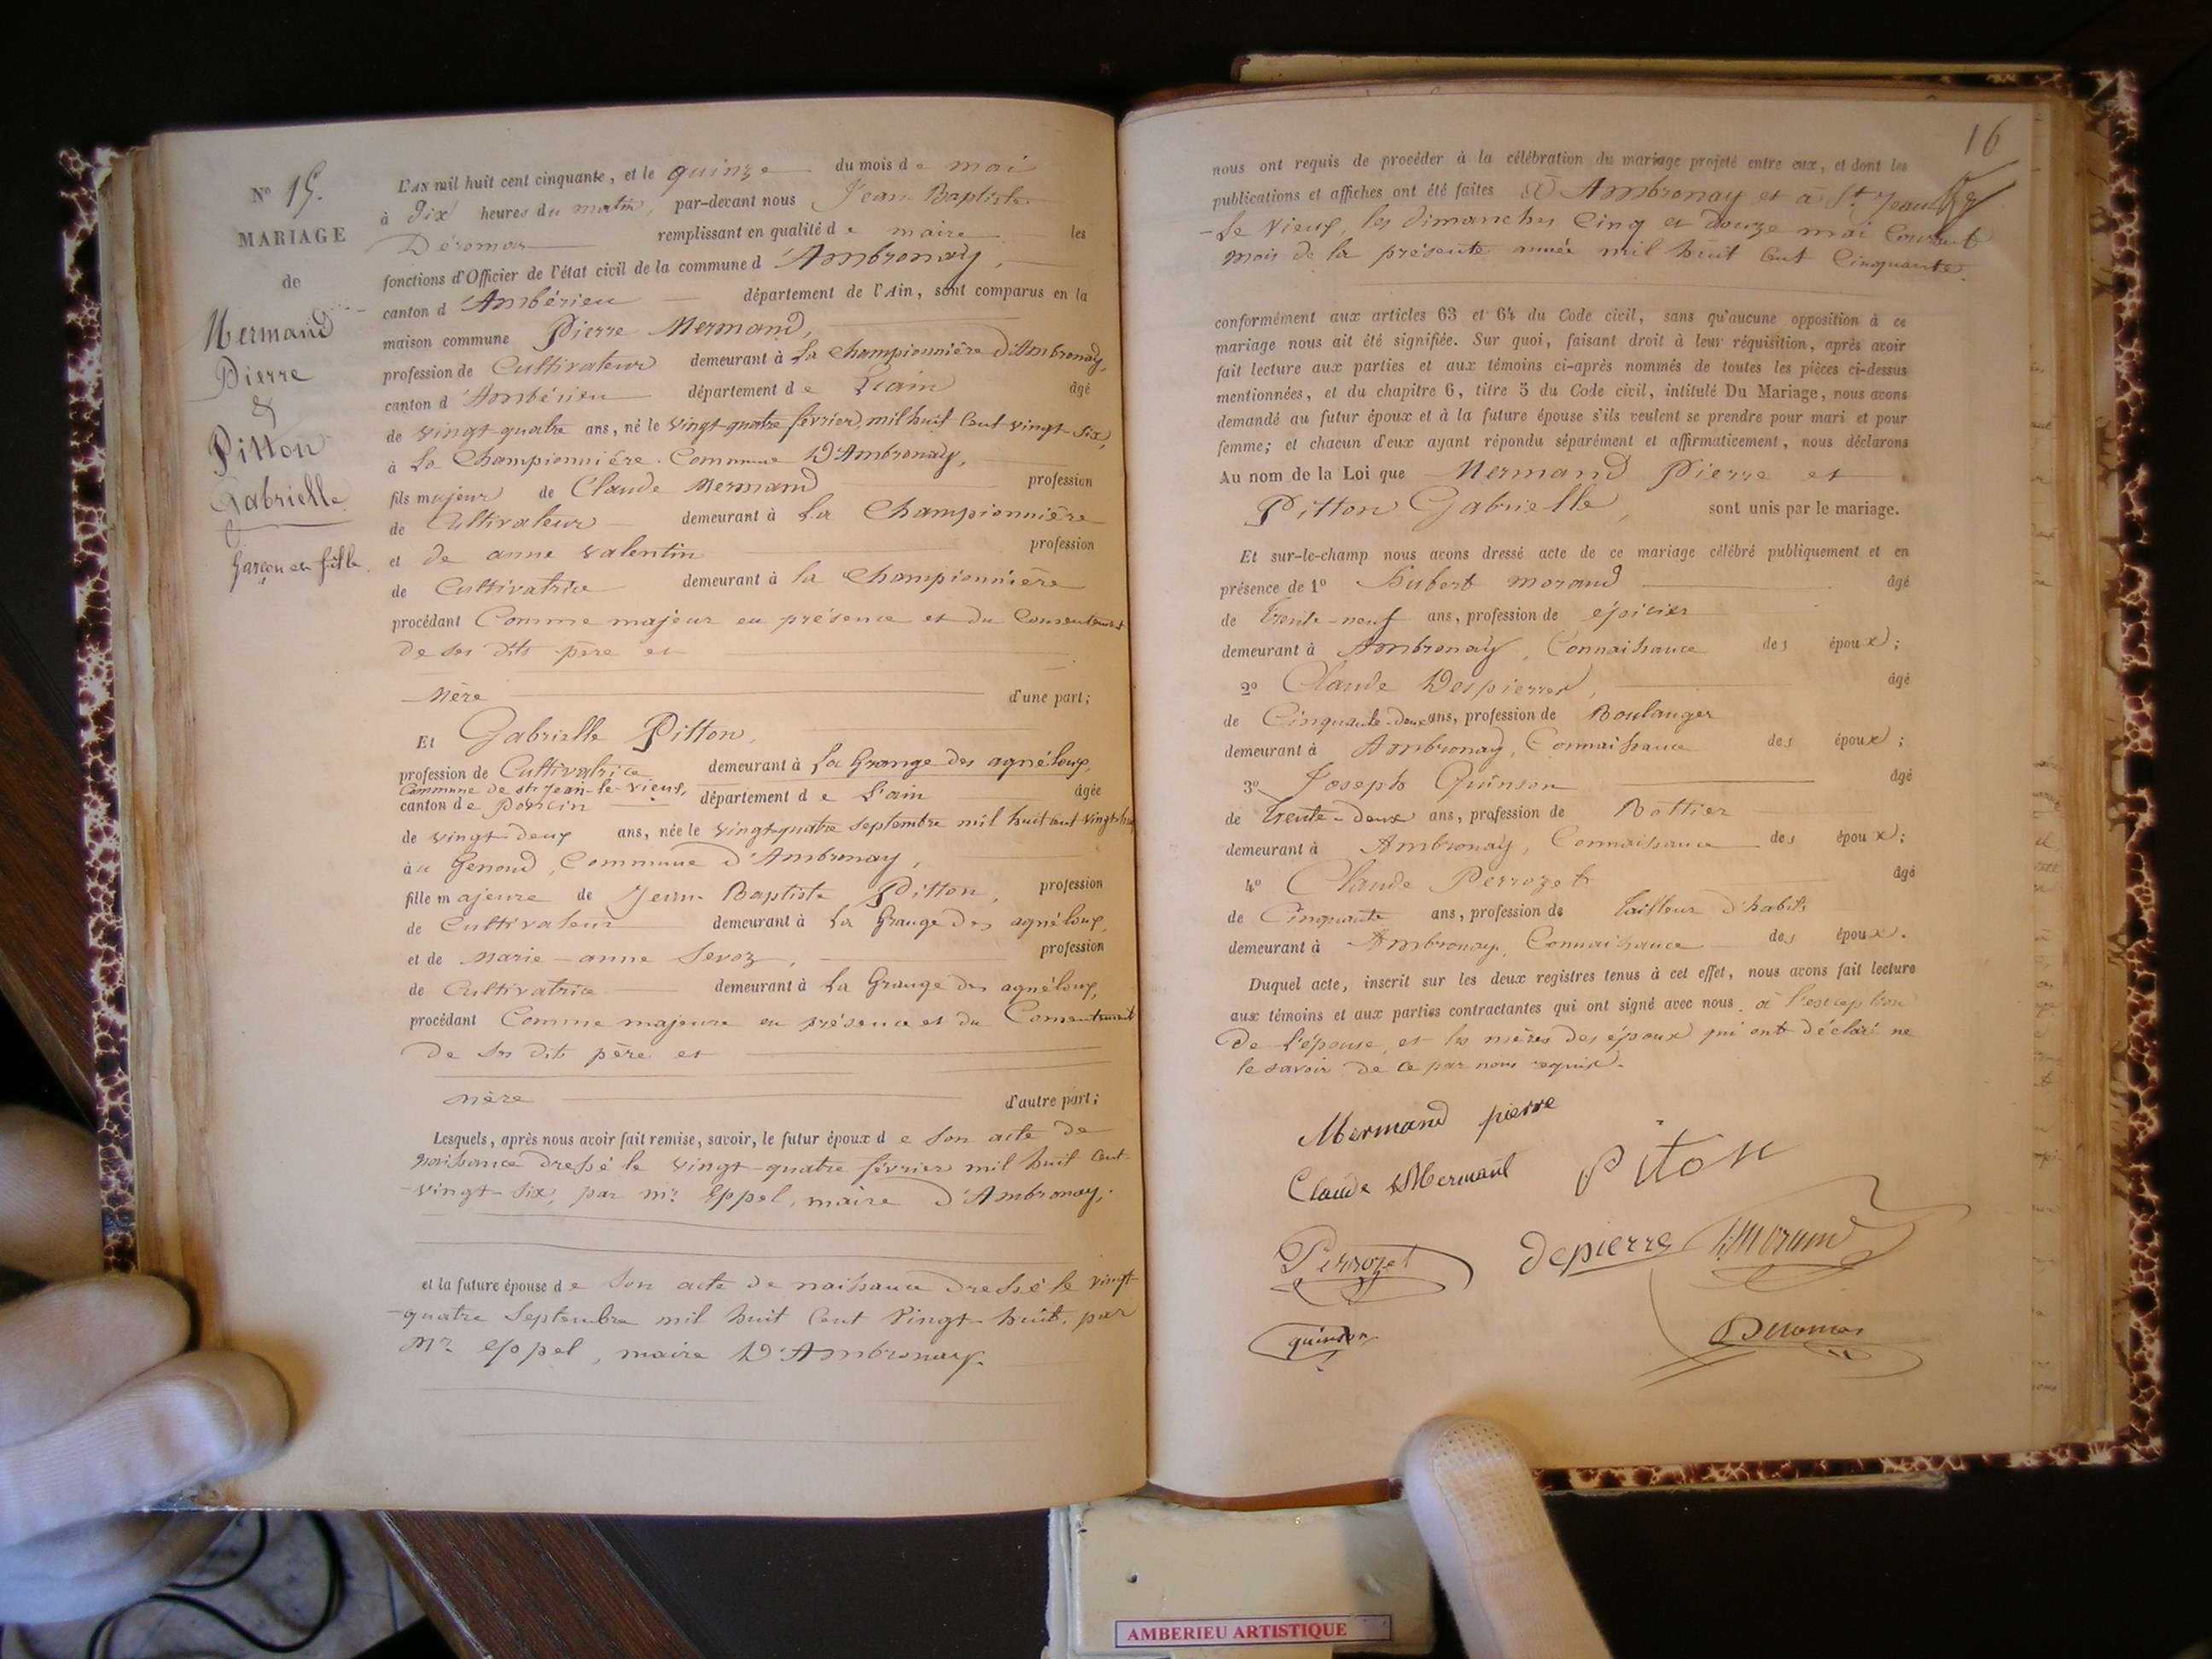 N° 15.
MARIAGE
de
Mermand
Pierre
&
Pitton
Gabrielle
Garçon et fille.
L'an mil huit cent cinquante, et le quinze du mois de mai
à Dix heures du matin, par-devant nous Jean-Baptiste
Déromas remplissant en qualité de maire les
fonctions d'Officier de l'état civil de la commune d'Ambronay,
canton d'Ambérieu département de l'Ain, sont comparus en la
maison commune Pierre Mermand,
profession de Cultivateur demeurant à La Championnière d'Ambronay,
canton d'Ambérieu département de L'ain âgé
de vingt-quatre ans, né le vingt-quatre février mil huit cent vingt-six,
à La Championnière. Commune D'Ambronay,
fils majeur de Claude Mermand profession
de Cultivateur demeurant à La Championnière
et de anne Valentin profession
de Cultivatrice demeurant à la Championnière
procédant Comme majeur en présence et du Consentement
de ses dits père et
Mère d'une part;
Et Gabrielle Pitton,
profession de Cultivatrice demeurant à La Grange des agnéloux,
Commune de st Jean-le-Vieux,
canton de Poncin département de L'ain âgée
de vingt-deux ans, née le vingt-quatre septembre mil huit cent vingt-huit
au Genoud, Commune d'Ambronay,
fille majeure de Jean-Baptiste Pitton, profession
de Cultivateur demeurant à La Grange des agnéloux,
et de Marie-anne Sevoz, profession
de Cultivatrice demeurant à La Grange des agnéloux,
procédant Comme majeure en présence et du Consentement
de ses dits père et
mère d'autre part;
Lesquels, après nous avoir fait remise, savoir, le futur époux de son acte de
naissance dressé le vingt-quatre février mil huit cent-
-vingt-six, par mr. Eppel, maire d'Ambronay,
et la future épouse de son acte de naissance dressé le vingt-
-quatre Septembre mil huit Cent Vingt-huit, par
Mr. eppel, maire D'Ambronay.
16
nous ont requis de procéder à la célébration du mariage projeté entre eux, et dont les
publications et affiches ont été faites à Ambronay et à St. Jean
-Le Vieux, les dimanches Cinq et douze mai Courant
mois de la présente année mil huit Cent Cinquante.
conformément aux articles 63 et 64 du Code civil, sans qu'aucune opposition à ce
mariage nous ait été signifiée. Sur quoi, faisant droit à leur réquisition, après avoir
fait lecture aux parties et aux témoins ci-après nommés de toutes les pièces ci-dessus
mentionnées, et du chapitre 6, titre 5 du Code civil, intitulé Du Mariage, nous avons
demandé au futur époux et à la future épouse s'ils veulent se prendre pour mari et pour
femme; et chacun d'eux ayant répondu séparément et affirmativement, nous déclarons
Au nom de la Loi que Mermand Pierre et
Pitton Gabrielle, sont unis par le mariage.
Et sur-le-champ nous avons dressé acte de ce mariage célébré publiquement et en
présence de 1° Hubert Morand âgé
de Trente-neuf ans, profession de épicier
demeurant à Ambronay, Connaissance des époux;
2° Claude Despierres, âgé
de Cinquante-deux ans, profession de Boulanger
demeurant à Ambronay, Connaissance des époux;
3° Joseph Quinson âgé
de Trente-deux ans, profession de Bottier
demeurant à Ambronay, Connaissance des époux;
4° Claude Perrozet âgé
de Cinquante ans, profession de Tailleur d'habits
demeurant à Ambronay, Connaissance des époux.
Duquel acte, inscrit sur les deux registres tenus à cet effet, nous avons fait lecture
aux témoins et aux parties contractantes qui ont signé avec nous. à l'exception
De L'épouse, et les mères des époux qui ont déclaré ne
le savoir de ce par nous requis.
Mermand pierre
Claude Mermand Piton
Perrozet depierre h Morand
quinson Deromas
AMBERIEU ARTISTIQUE